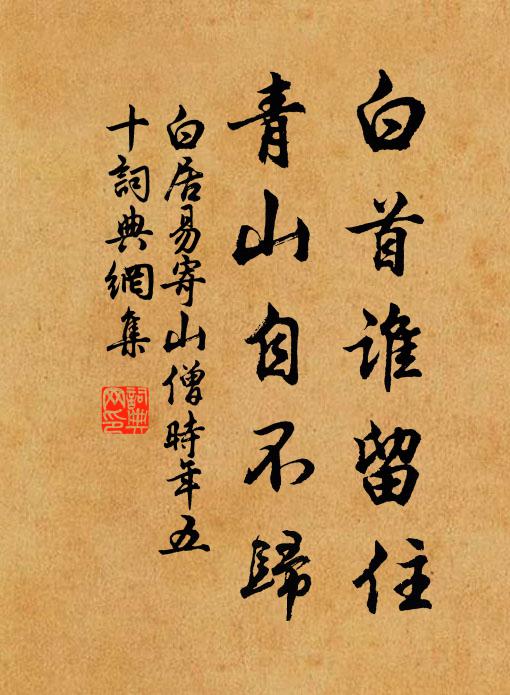 白首誰留住
青山自不歸
白居易寄山僧時年五
十詞典網集
詞典網印